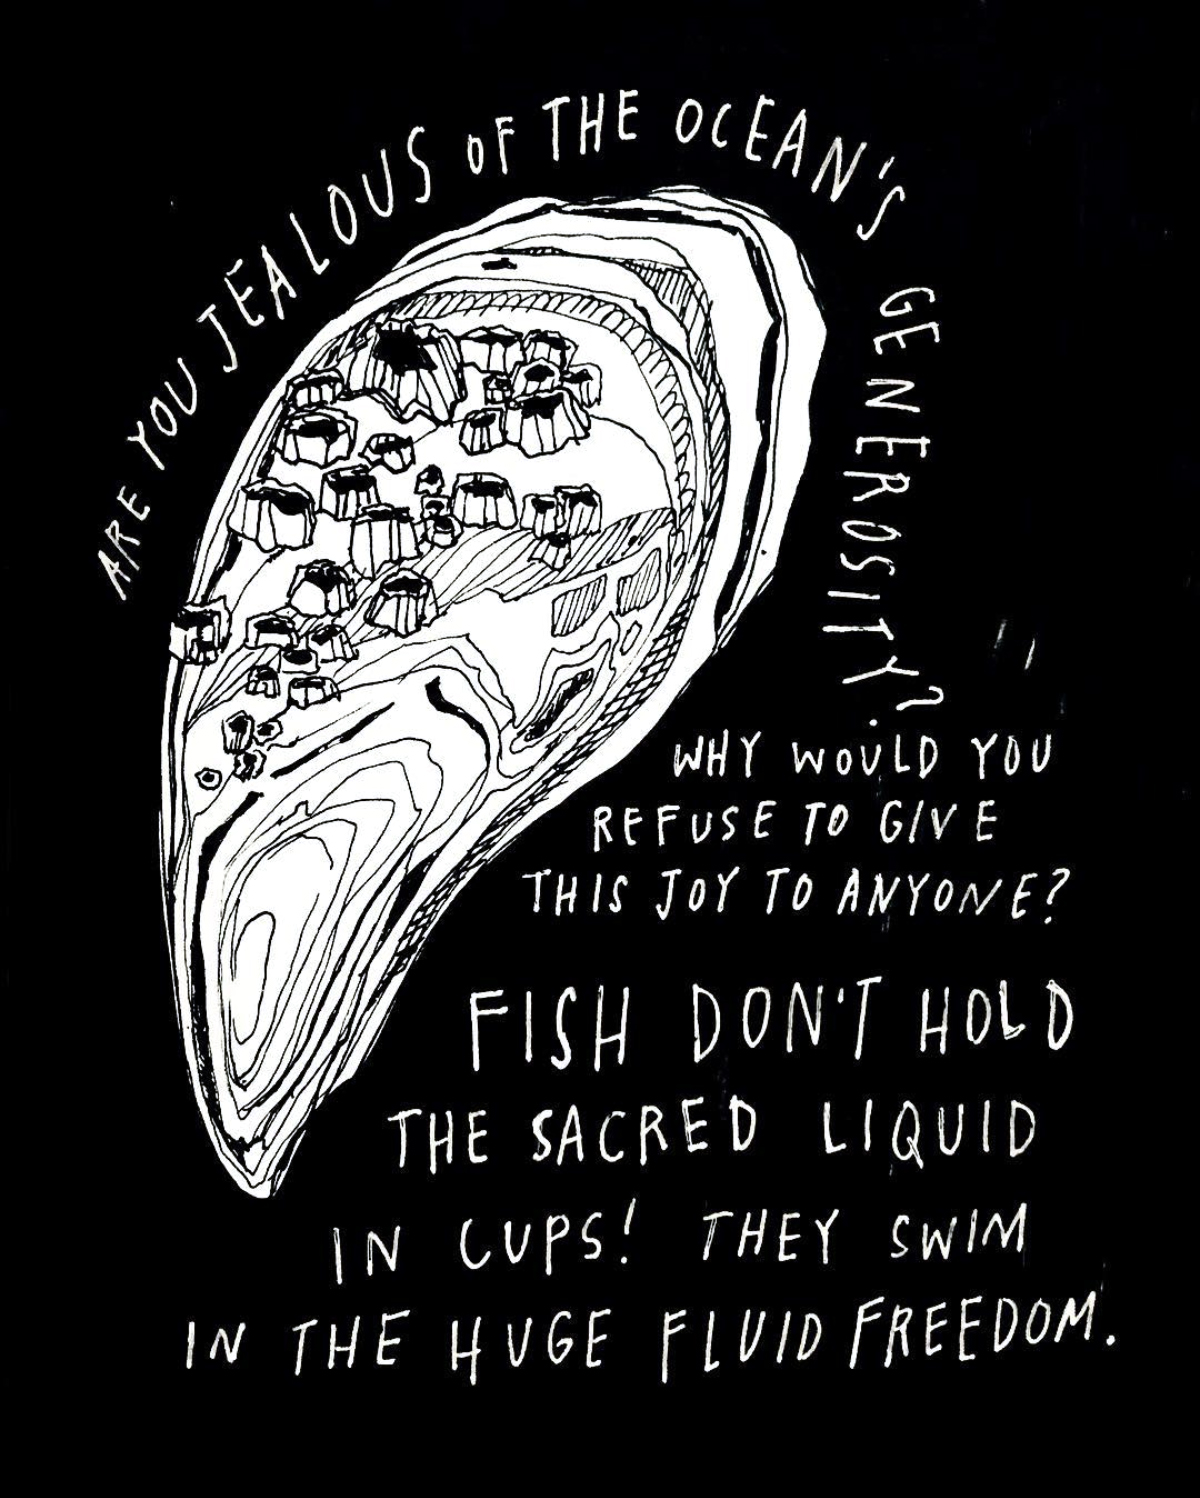 ARE YOU JEALOUS OF THE OCEAN'S GENEROSITY?
WHY WOULD YOU
REFUSE TO GIVE
THIS JOY TO ANYONE?
FISH DON'T HOLD
THE SACRED LIQUID
IN CUPS! THEY SWIM
IN THE HUGE FLUID FREEDOM.